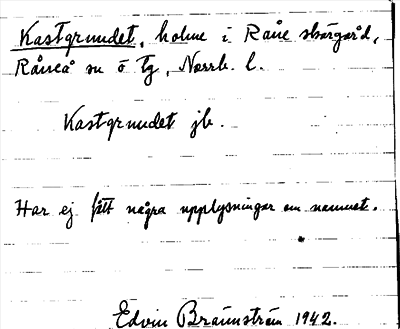 Kastgrundet, holme i Råne skärgård,
Råneå sn ö tg, Norrb. l.
Kastgrundet jb.
Har ej fått några upplysningar om namnet.
Edvin Brännström 1942.